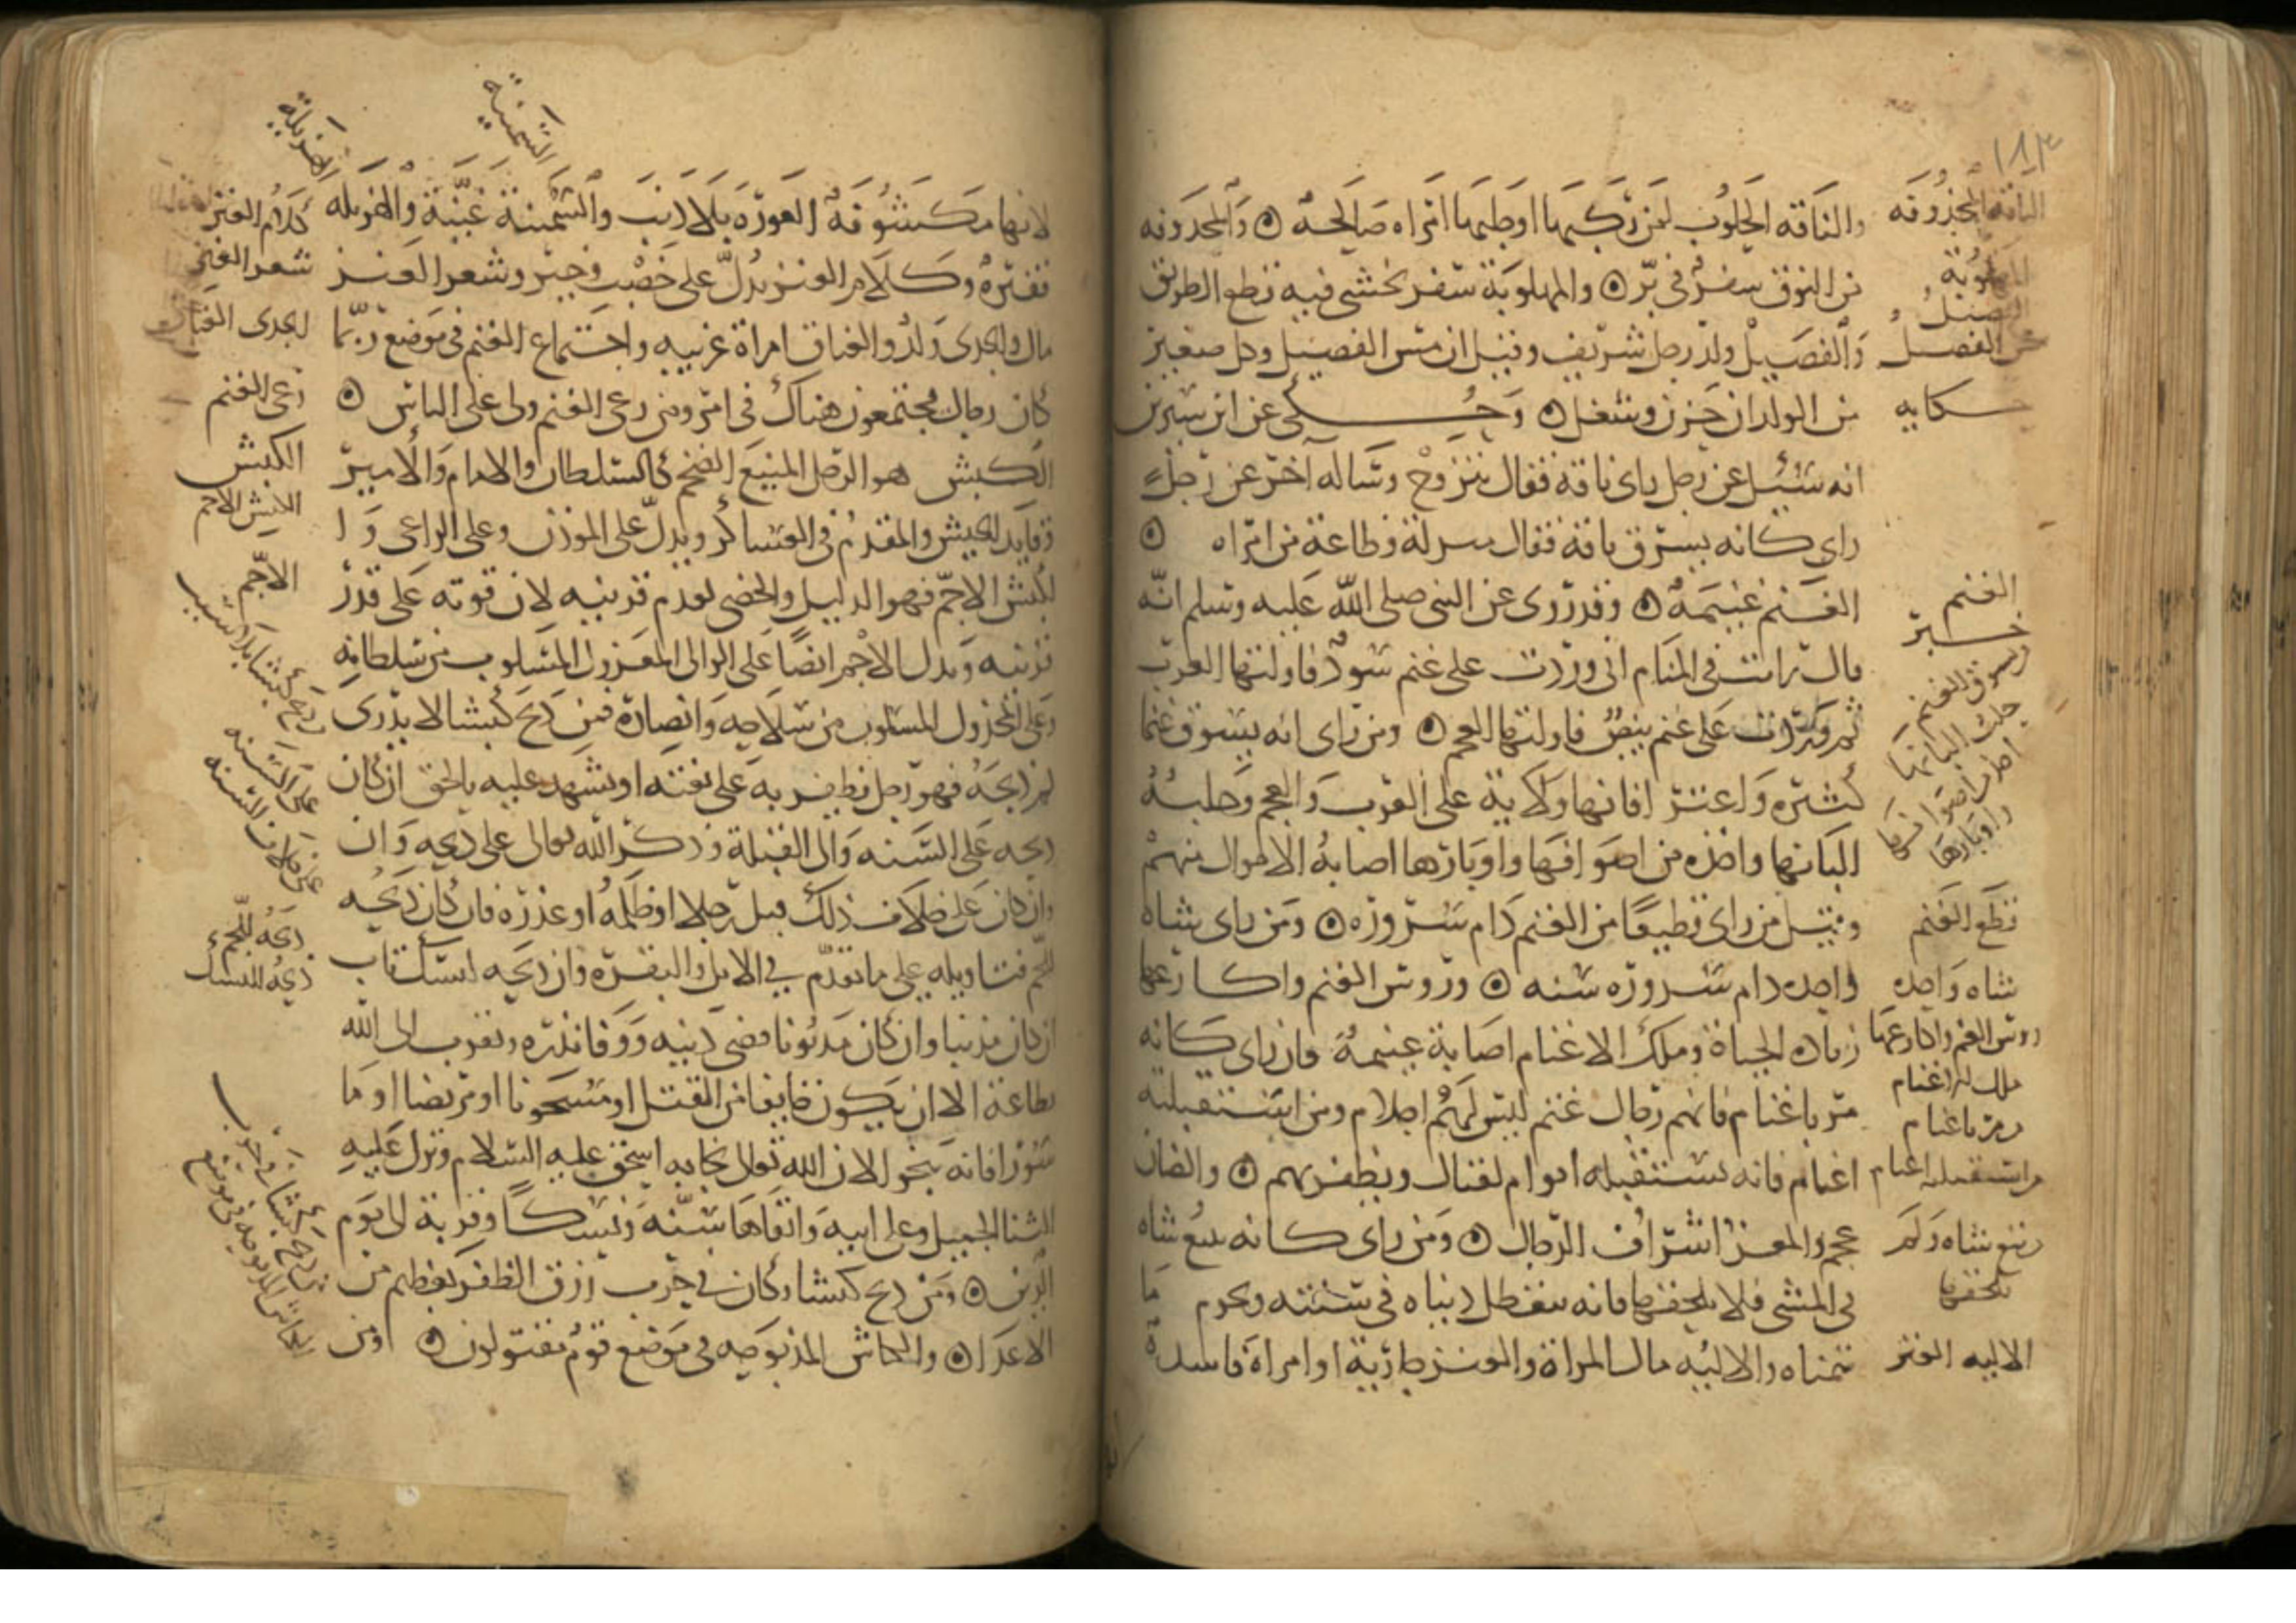 والناقة الحلوب لمن ركبها او حلبها امراه صَالحهٌ ۞ وَالمجذوفه
من النوق سفرٌ في برّ ۞ والمهلوبَة سَفر يخشى فيه قطع الطريق
وَالفصَيلْ ولد رجل شريف وقيل ان مس الفصيل وكل صغير
من الولدان حَزن وشغل ۞ وَحُكى عن ابن سيرين
انه سُئيل عن رجل راى ناقة فقال يتزوج وسَاله آخر عن رجلٍ
راى كانه يسرق ناقة فقال منزلة وطاعة من امراه ۞
الغَنم غنيمَهٌ ۞ وقد روى عن النبى صلى اللّه عَليه وسلم انّه
قال رايت في المنَام انى وردت على غنم سُودٌ فاولتها العرب
ثم وَردت عَلى غنم بيضٌ فاولتها العجم ۞ ومن راى انه يسوق غنما
كثيره وَاعنز افانها ولاَية على العرب وَالعجم وَحلبهُ
البانها واخذه من اصوافهَا واوبَارها اصابهُ الاموال منهمْ
وقيل من راى قطيعًا من الغنم دَام سُروره ۞ ومَن راى شاه
واحده دام سروره سَنه ۞ وروس الغنم واكارعها
زياده الحياة وملك الاغنام اصَابة غنيمهٌ فان راى كَانه
مر باغنام فانهم رجال غنم ليس لهم احلام ومن استقبلته
اغنام فانه يستقبله اقوام لقتال ويظفر بهم ۞ والضان
عجم والمعز اشرَاف الرجال ۞ وَمَن راى كانه يتبع شاه
في المشى فلا يلحقها فانه تتعطل دنياه في سَنته ويحرم مَا
تمناه والاليُه مال المراة والعنز جارية او امراة فاسدة
الناقة المجذُوفَه
المهلوبة
الفصيلُ
مس الفصيلُ
حكايه
الغنم
خبر
وسوق الغنم
حلب البانها
اخذ اصوافها
واوبارها
قطَع الغَنم
شاه وَاحده
روس الغنم واكارعها
ملك الاغنام
مر باغنام
واستقبله اغنام
يتبع شاه وَلم
يلحقها
الاليه العنز
لانها مكشوفهٌ العَورَه بلاَ ذنَب وَالسَّمينة غنيّة وَالهَزيله
فقيره وكلام العنز يدُلّ على خصْب وخير وشعر العَنز
مال والجدى وَلدٌ والعناق امراة غريبه واجتماع الغنم في مَوضع ربّما
كان رجال مجتمعون هناك في امر ومن رعى الغنم ولى على الناس ۞
الكبش هو الرجل المنيع الضخم كالسلطان والامام وَالامير
وقايد الجيش والمقدم في العسَاكر ويدلّ على المؤذن وعلى الراعى وَا
لكبش الاجَمّ فهو الذليل والخصى لعدم قرنيه لان قوته على قدر
قرنيه ويدل الاجم ايضًا عَلى الوالى المعزول المسَلوب من سلطانه
وعَلى المخذول المسلوب من سَلاحه وَانصاره فمن ذبح كبشا لا يدرى
لم ذبحَهُ فهو رجل يظفر به عَلى بغته او يشهد عليه بالحق ان كان
ذبحه عَلى السَّنه وَالى القبلة وذكر اللّه تعالى على ذبحه وَان
وان كان على خلاف ذلك قتل رجلا او ظلمهُ او عذره فان كان ذبحُه
للحم فتاويله على ما تقدم في الابل والبقره وان ذبحه لنسك تاب
ان كان مذنبا وان كان مَديُونا قضى دَينه وَوفا نذره وتقرب الى اللّه
بطاعة الا ان يكون خايفا من القتل او مسجونا او مريضا او مَا
سُورًا فانه ينجو لان اللّه تعالى نجا به اسحق عليه السَلام ونزل عَليه
الثنا الجميل وعلى ابيه وَابقاهَا سَنّة وَنُسكًا وقربة الى يوم
الدين ۞ ومَن ذبح كبشا وكان في حَرب رزق الظفر بعظيم من
الاعدَا ۞ والكباش المذبوحه في موضع قومٌ مقتولون ۞ ومن
السَّمينَة
الهَزيلَة
كلام العنز
شعر العنز
الجدى العناق
رعى الغنم
الكبش
الكبش الاجم
الاجمّ
على السَّنه
على خلاف السنه
ذبحَهُ للّحم
ذبحهُ للنسك